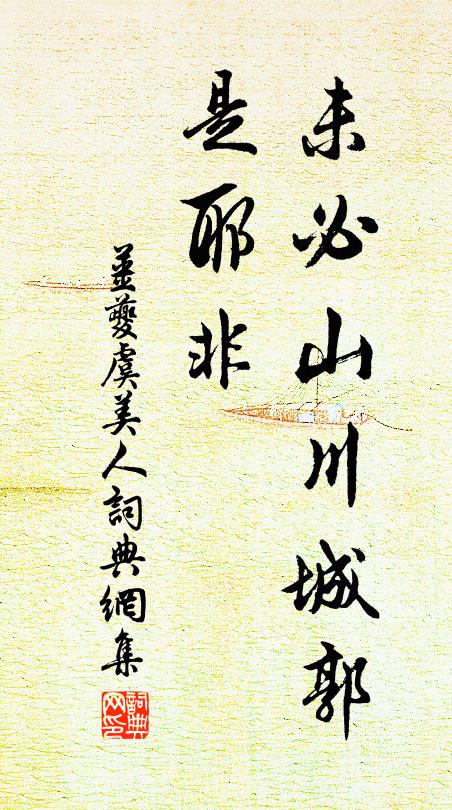 未必山川城郭
是耶非
姜夔虞美人詞典網集
詞典网印